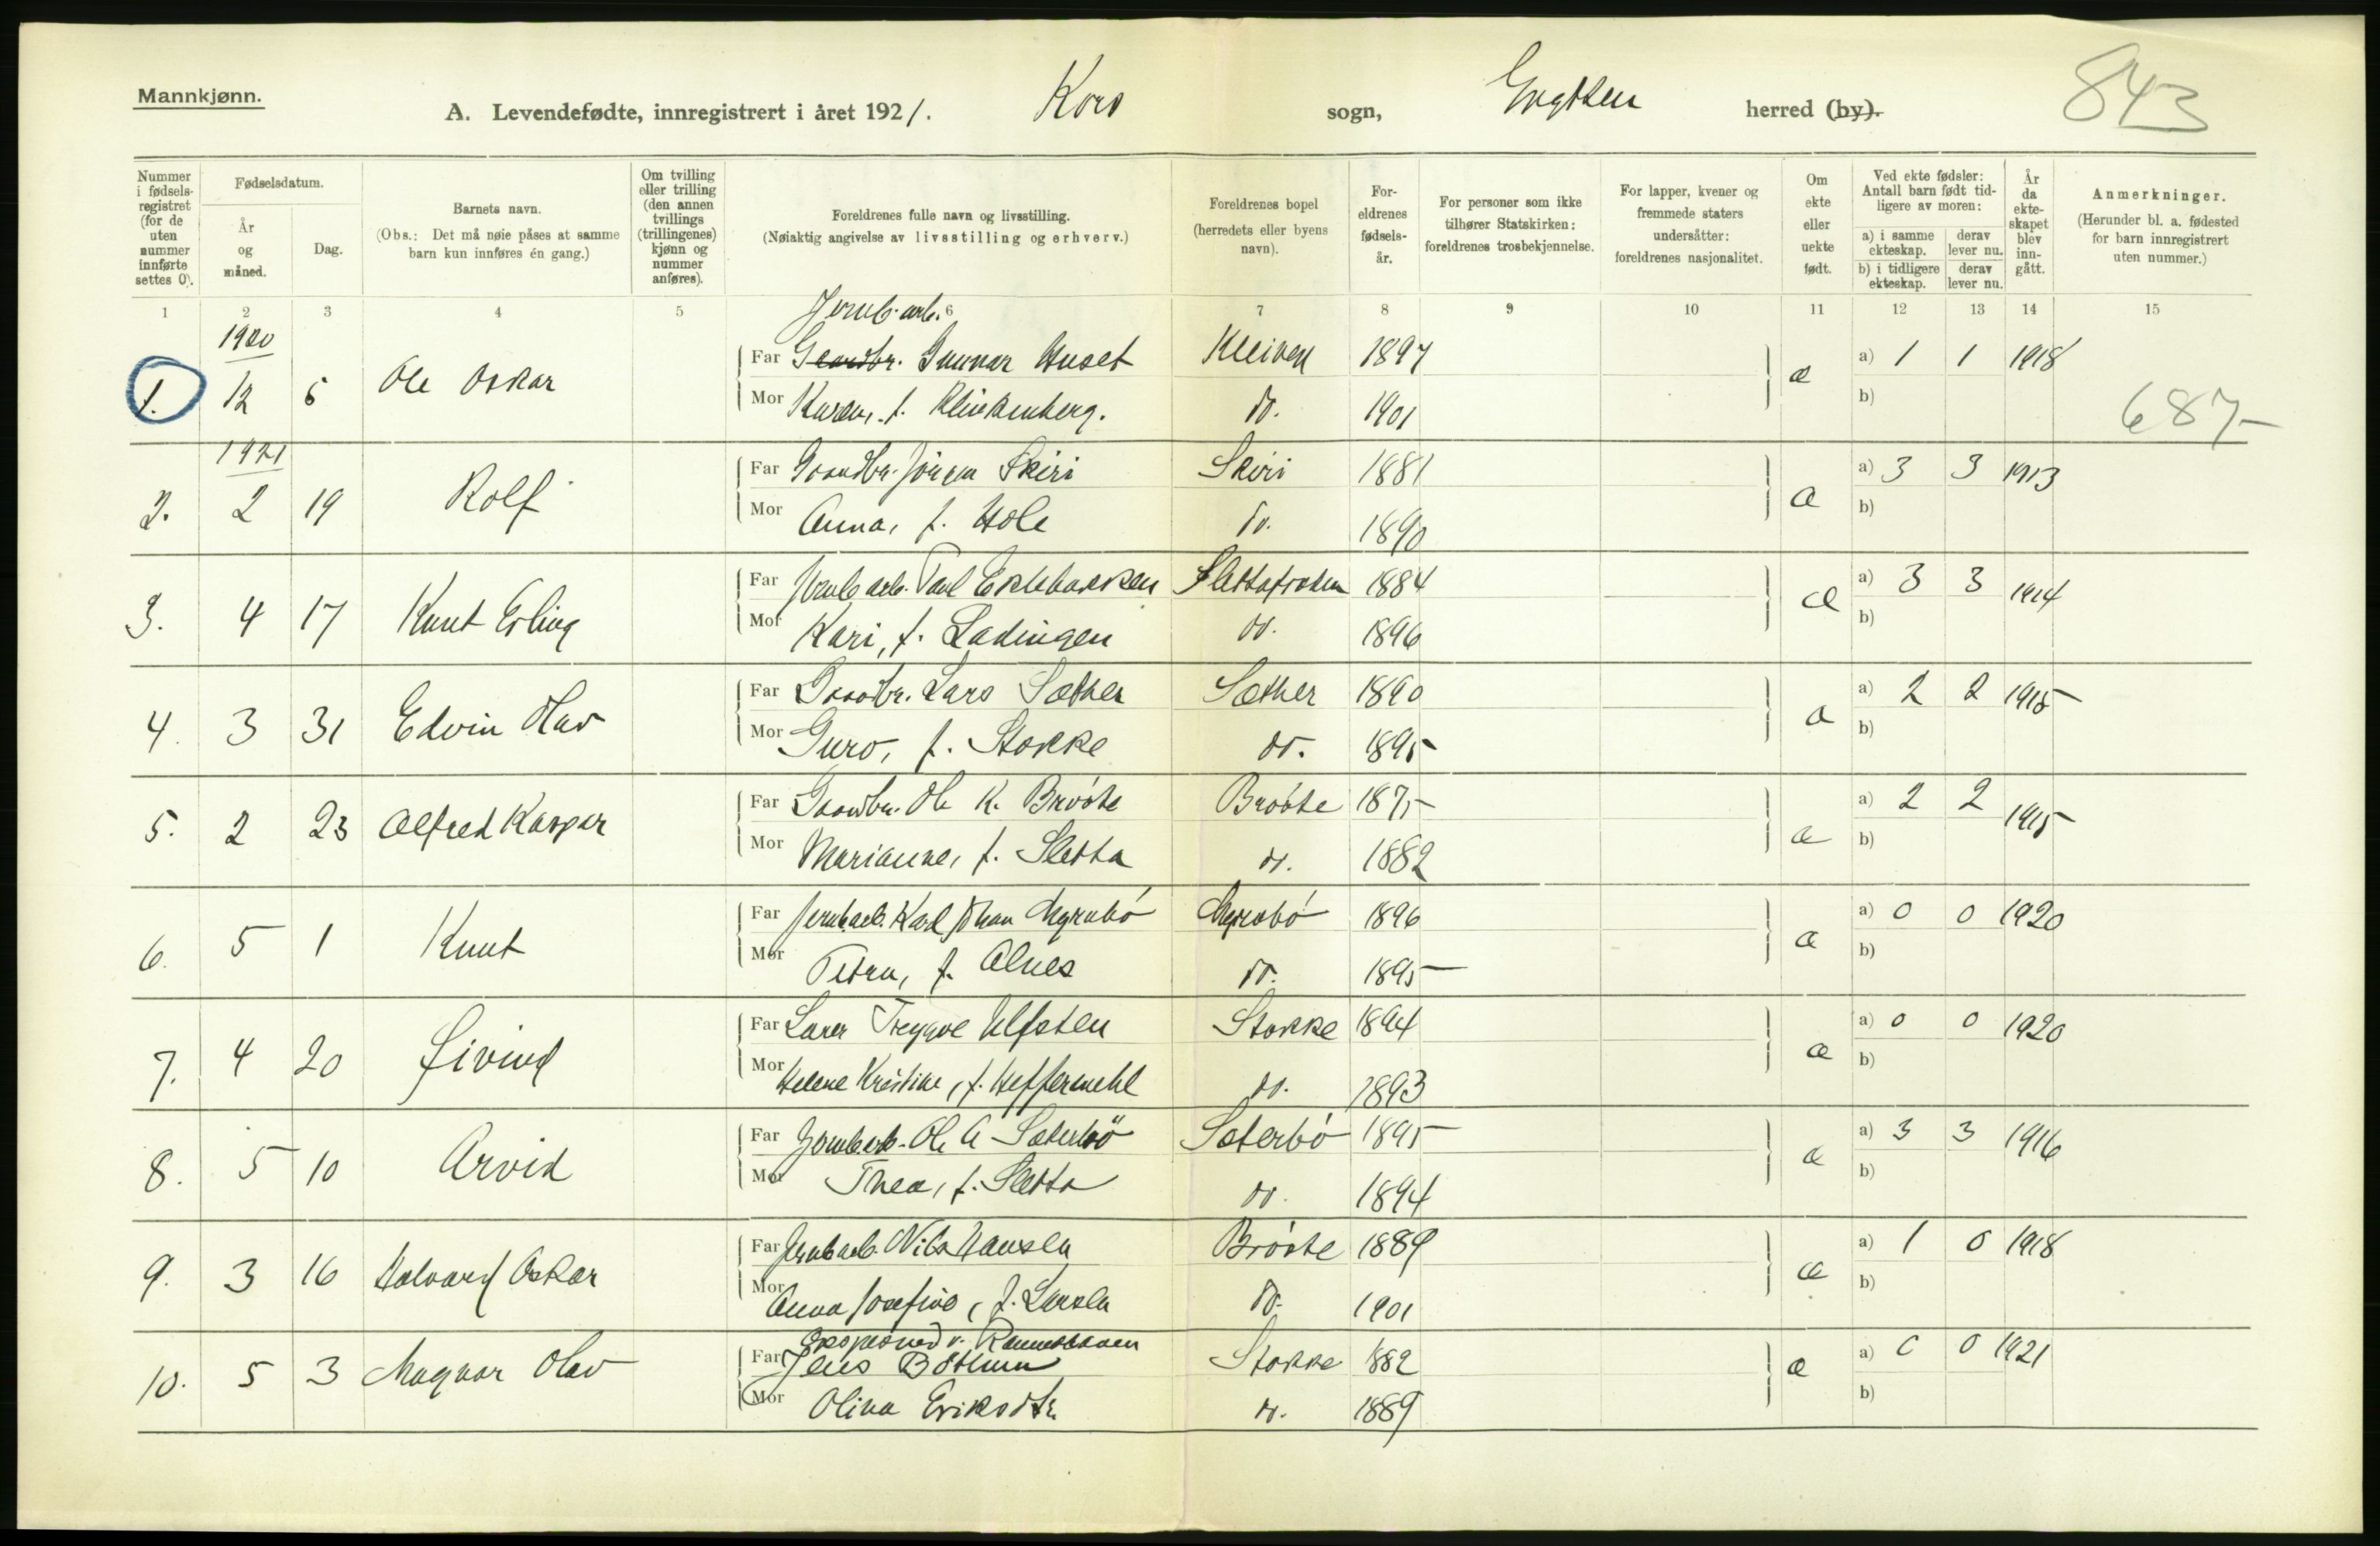 Mannkjønn.
A. Levendefødte, innregistrert i året 1921. Kors sogn, Grytten herred (by). 843
Nummer i fødsels-registret (for de uten nummer innførte settes 0).
Fødselsdatum.
År og måned.
Dag.
Barnets navn.
(Obs.: Det må nøie påses at samme barn kun innføres én gang.)
Om tvilling eller trilling (den annen tvillings (trillingenes) kjønn og nummer anføres).
Foreldrenes fulle navn og livsstilling.
(Nøiaktig angivelse av livsstilling og erhverv.)
Foreldrenes bopel (herredets eller byens navn).
For-eldrenes fødsels-år.
For personer som ikke tilhører Statskirken: foreldrenes trosbekjennelse.
For lapper, kvener og fremmede staters undersåtter: foreldrenes nasjonalitet.
Om ekte eller uekte født.
Ved ekte fødsler: Antall barn født tid-ligere av moren:
a) i samme ekteskap. derav lever nu.
b) i tidligere ekteskap. derav lever nu.
År da ekte-skapet blev inn-gått.
Anmerkninger.
(Herunder bl. a. fødested for barn innregistrert uten nummer.)
1 2 3 4 5 6 7 8 9 10 11 12 13 14 15
Jernb.arb.
1920
1. 12 5 Ole Oskar Far Gaardbr. Gunnar Huset Kleiven 1897 æ a) 1 1 1918
Mor Karen, f. Klinkenberg. do. 1901 b) 687-
1921
2. 2 19 Rolf Far Gaardbr. Jörgen Skiri Skiri 1881 æ a) 3 3 1913
Mor Anna, f. Hole do. 1890 b)
3. 4 17 Knut Erling Far Jernb.arb. Paul Eklebakken 1884 æ a) 3 3 1914
Mor Kari, f. Ladingen do. 1896 b)
4. 3 31 Edvin Olav Far Gaardbr. Lars Sæther Sæther 1890 æ a) 2 2 1915
Mor Guro, f. Stokke do. 1895 b)
5. 2 23 Alfred Kaspar Far Gaardbr. Ole K. Bröste Bröste 1875 æ a) 2 2 1915
Mor Marianne, f. Sletta do. 1882 b)
6. 5 1 Knut Far Jernb.arb. Karl Johan Myrabö Myrabö 1896 æ a) 0 0 1920
Mor Petra, f. Alnes do. 1895 b)
7. 4 20 Øivind Far Lærer Tryggve Ulfsten Stokke 1894 æ a) 0 0 1920
Mor Helene Kristine, f. Heffermehl do. 1893 b)
8. 5 10 Arvid Far Jernb.arb. Ole A Sæterbö Sæterbö 1895 æ a) 3 3 1916
Mor Thea, f. Sletta do. 1894 b)
9. 3 16 Halvard Oskar Far Jernb.arb. Nils Hansen Bröste 1889 æ a) 1 0 1918
Mor Anna Josefine, f. Larsen do. 1901 b)
10. 5 3 Magnar Olav Far Jens Böthun Stokke 1882 æ a) 0 0 1921
Mor Olina Eriksdtr. do. 1889 b)